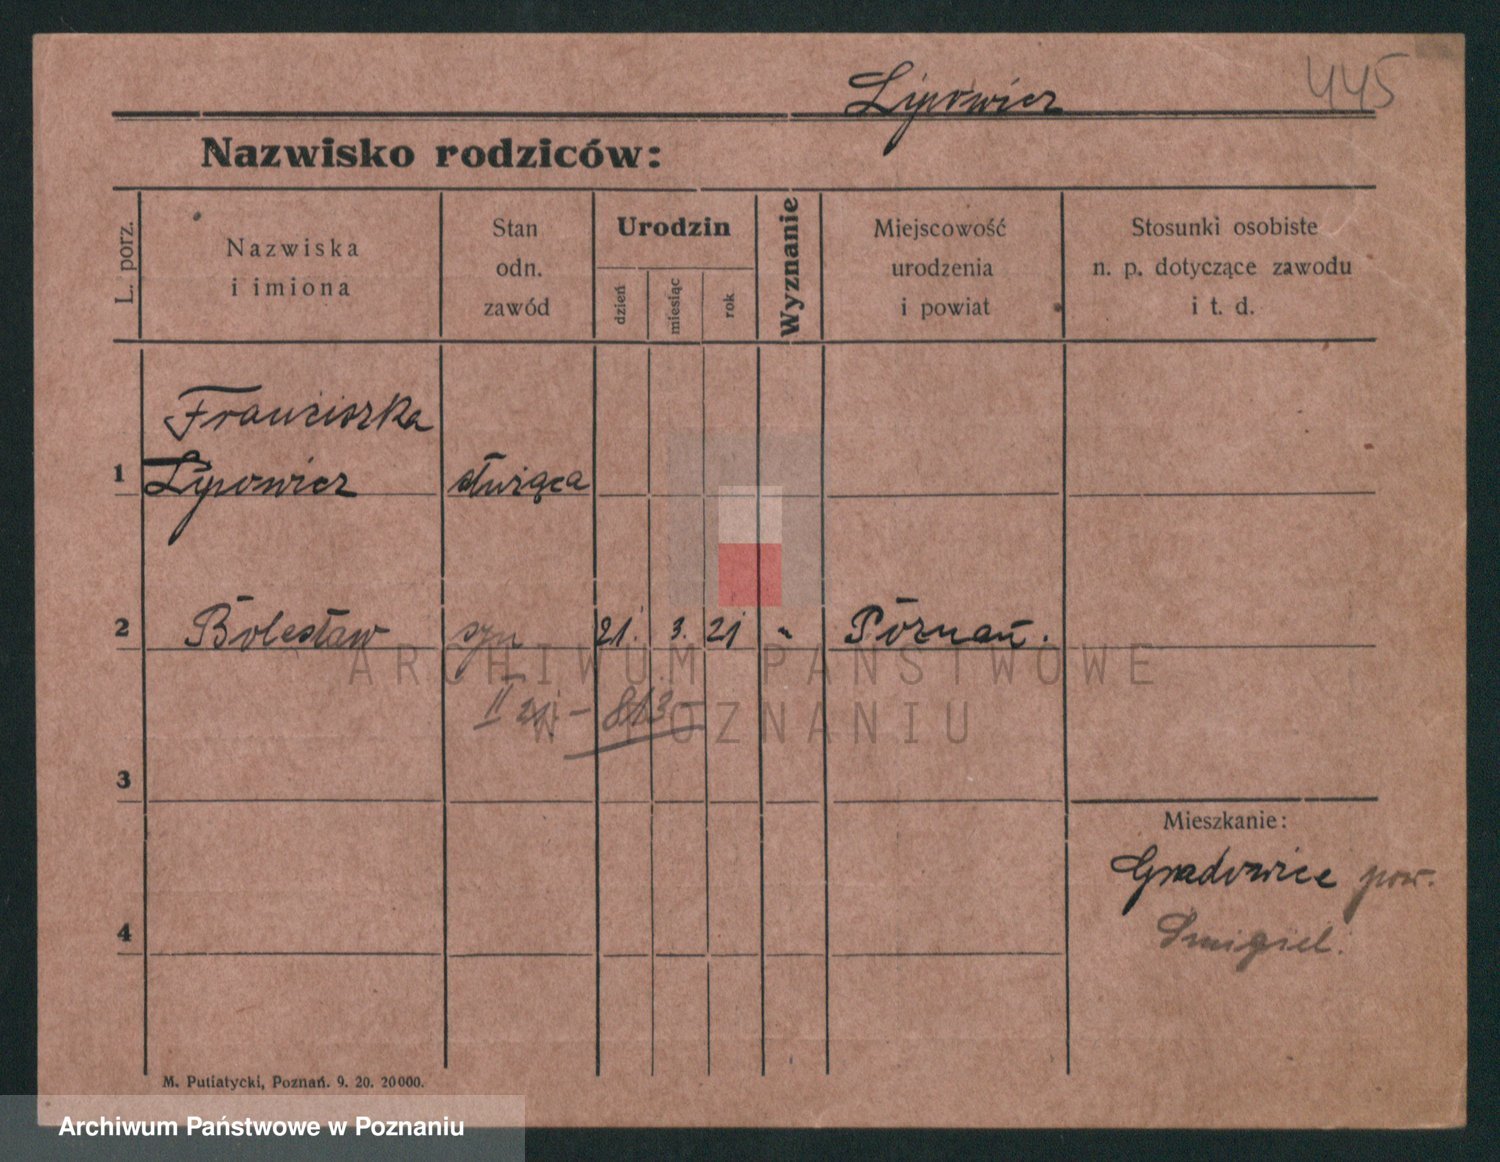 Lipowicz
445
Nazwisko rodziców:
L. porz.
Nazwiska
i imiona
Stan
odn.
zawód
Urodzin
dzień
miesiąc
rok
Wyznanie
Miejscowość
urodzenia
i powiat
Stosunki osobiste
n. p. dotyczące zawodu
i t. d.
Franciszka
1 Lipowicz służąca
2 Bolesław syn 21. 3. 21 " Poznań.
ARCHIWUM PAŃSTWOWE
W POZNANIU
II 21 - 813
3
Mieszkanie:
Gradowice pow.
Śmigiel.
4
M. Putiatycki, Poznań. 9. 20. 20000.
Archiwum Państwowe w Poznaniu